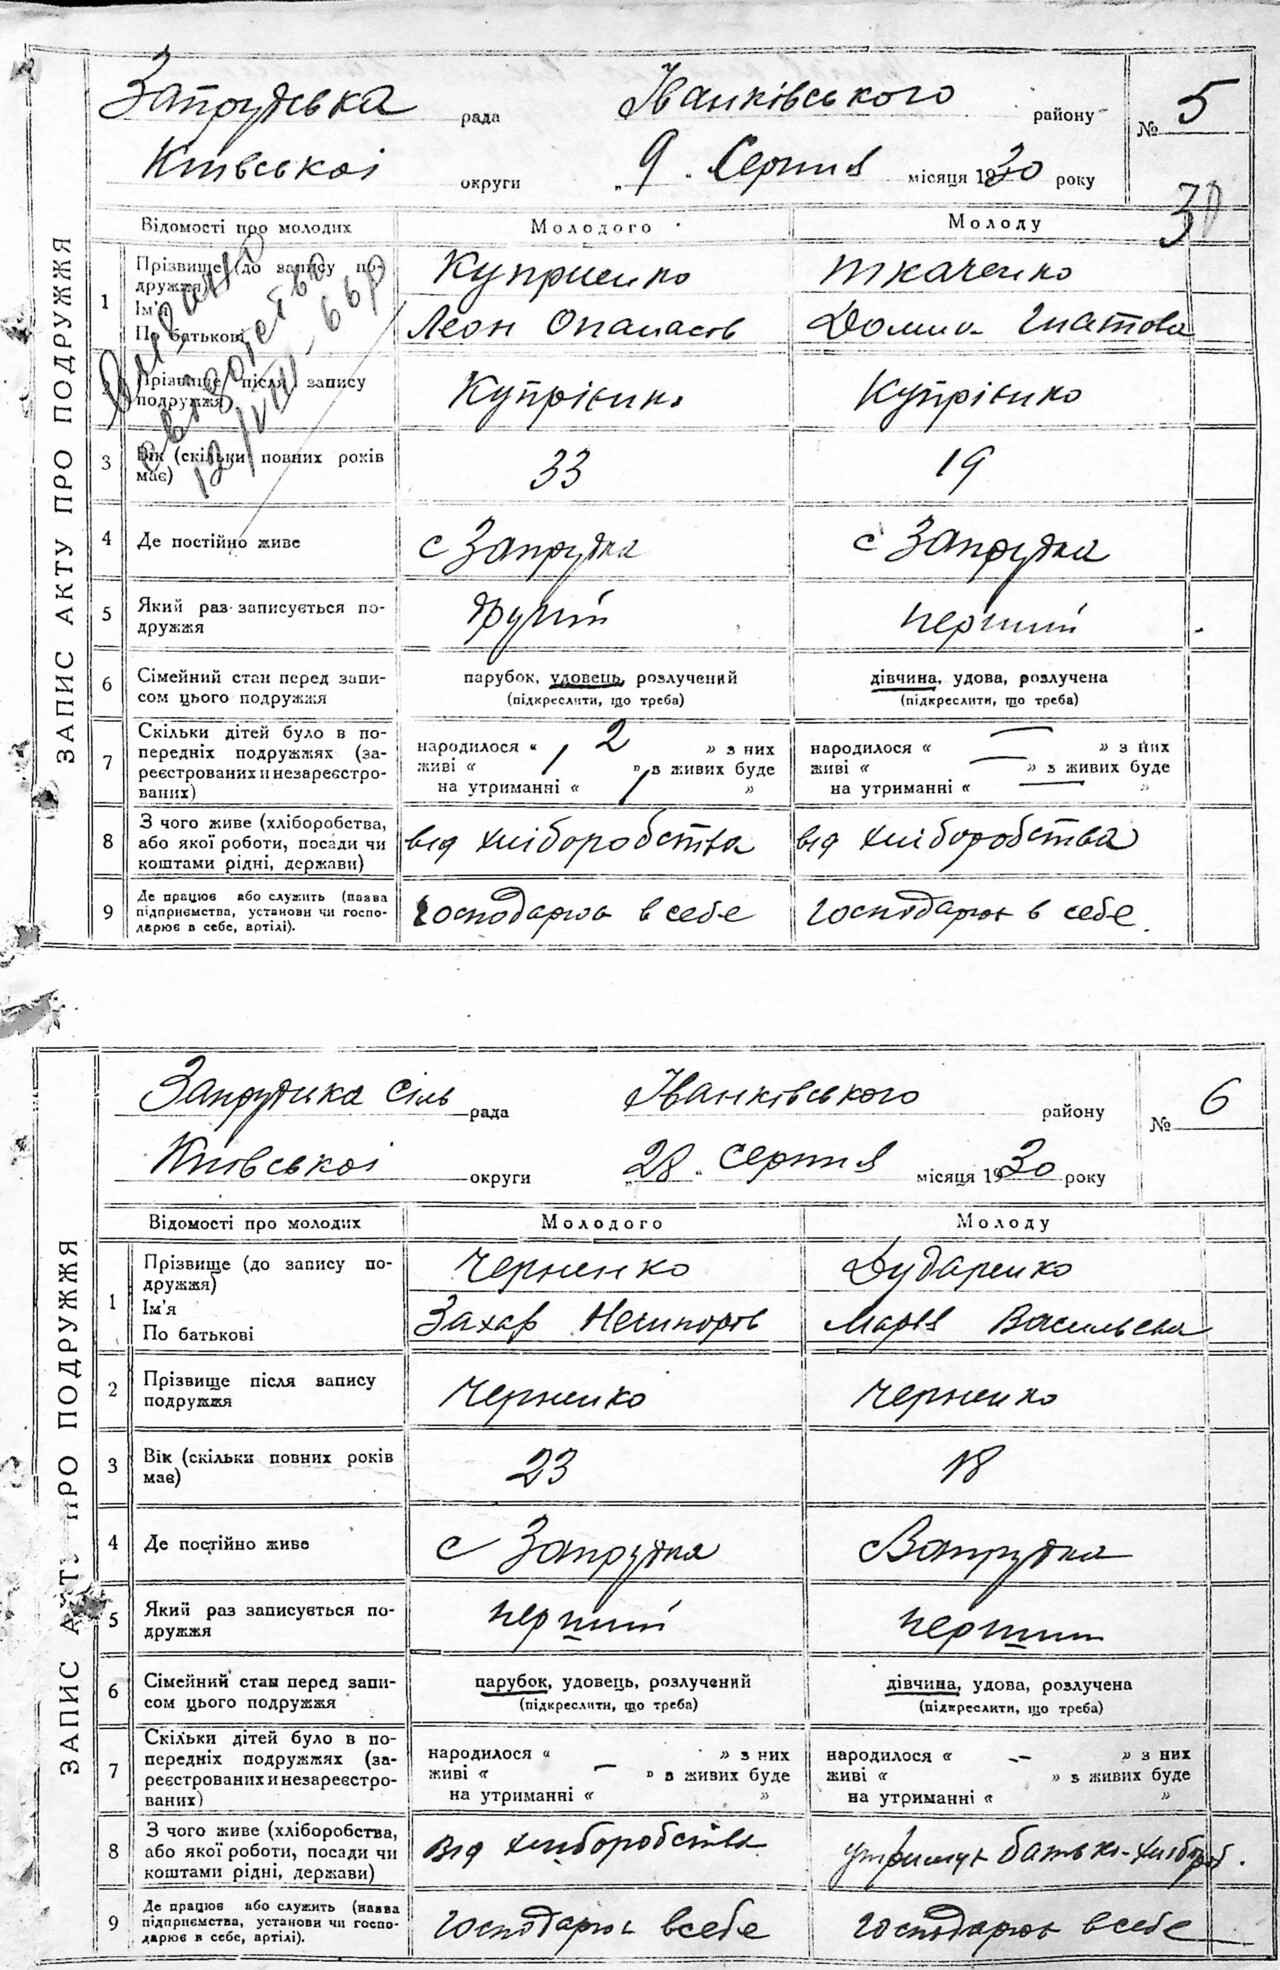 ЗАПИС АКТУ ПРО ПОДРУЖЖЯ
Запрудська рада Іванківського району № 5
Київської округи „ 9 „ Серпня місяця 1930 року
30
Відомості про молодих Молодого Молоду
1 Прізвище (до запису подружжя) Куприенко Ткаченко
Ім'я По батькові Леон Опанасів Домна Гнатова
2 Прізвище після запису подружжя Купрієнко Купрієнко
3 Вік (скільки повних років має) 33 19
4 Де постійно живе с Запрудка с Запрудка
5 Який раз записується подружжя другий перший
6 Сімейний стан перед записом цього подружжя парубок, удовець, розлучений (підкреслити, що треба) дівчина, удова, розлучена (підкреслити, що треба)
7 Скільки дітей було в попередніх подружжях (зареєстрованих и незареєстрованих) народилося « 2 » з них живі « » з живих буде на утриманні « » народилося « — » з них живі « — » з живих буде на утриманні « — »
8 З чого живе (хліборобства, або якої роботи, посади чи коштами рідні, держави) від хліборобства від хліборобства
9 Де працює або служить (назва підприємства, установи чи господарює в себе, артілі). Господарює в себе Господарює в себе.
Выдано
свидетельство
12/VIII-66р
ЗАПИС АКТУ ПРО ПОДРУЖЖЯ
Запрудська сіль рада Іванківського району № 6
Київської округи „ 28 „ серпня місяця 1930 року
Відомості про молодих Молодого Молоду
1 Прізвище (до запису подружжя) Черненко Дударенко
Ім'я По батькові Захар Нечипорів Марія Васильевна
2 Прізвище після запису подружжя Черненко Черненко
3 Вік (скільки повних років має) 23 18
4 Де постійно живе с Запрудка с Запрудка
5 Який раз записується подружжя перший перший
6 Сімейний стан перед записом цього подружжя парубок, удовець, розлучений (підкреслити, що треба) дівчина, удова, розлучена (підкреслити, що треба)
7 Скільки дітей було в попередніх подружжях (зареєстрованих и незареєстрованих) народилося « » з них живі « — » з живих буде на утриманні « » народилося « — » з них живі « » з живих буде на утриманні « »
8 З чого живе (хліборобства, або якої роботи, посади чи коштами рідні, держави) від хліборобства утримує батько-хлібороб.
9 Де працює або служить (назва підприємства, установи чи господарює в себе, артілі). Господарює в себе Господарює в себе